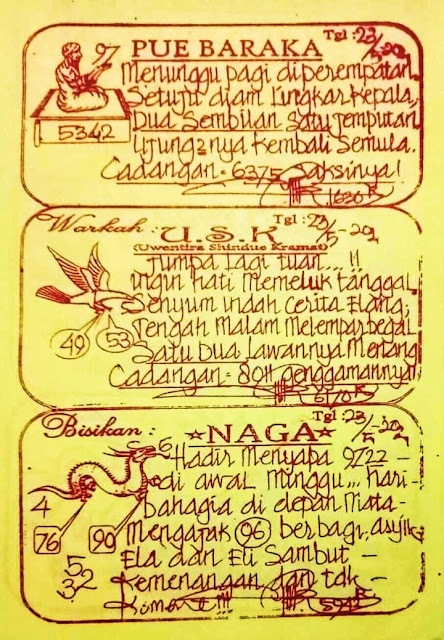 97 PUE BARAKA Tgl: 23/5-20
Menunggu pagi diperempatan
Setuju diam Lingkar Kepala,
5342 Dua Sembilan Satu Jemputan
Ujung2nya Kembali Semula.
Cadangan = 6375 Saksinya!
1630
Warkah : U.S.K Tgl : 23/5-20
(Uwentira Shindue Kramat)
Jumpa Lagi Tuan...!!
Ingin Hati Memeluk Tanggal
Senyum Indah Cerita Elang;
49 53 Tengah Malam Melempar Begal
Satu Dua Lawannya Menang
Cadangan = 8011 genggamannya!
6170
Bisikan : NAGA Tgl : 23/5-20
Hadir Menyapa 9722 -
di awal Minggu... hari-
4 bahagia di depan Mata-
76 90 Mengajak 96 berbagi, asyik
5 Ela dan Eli Sambut -
32 Kemenangan dan tak -
5942